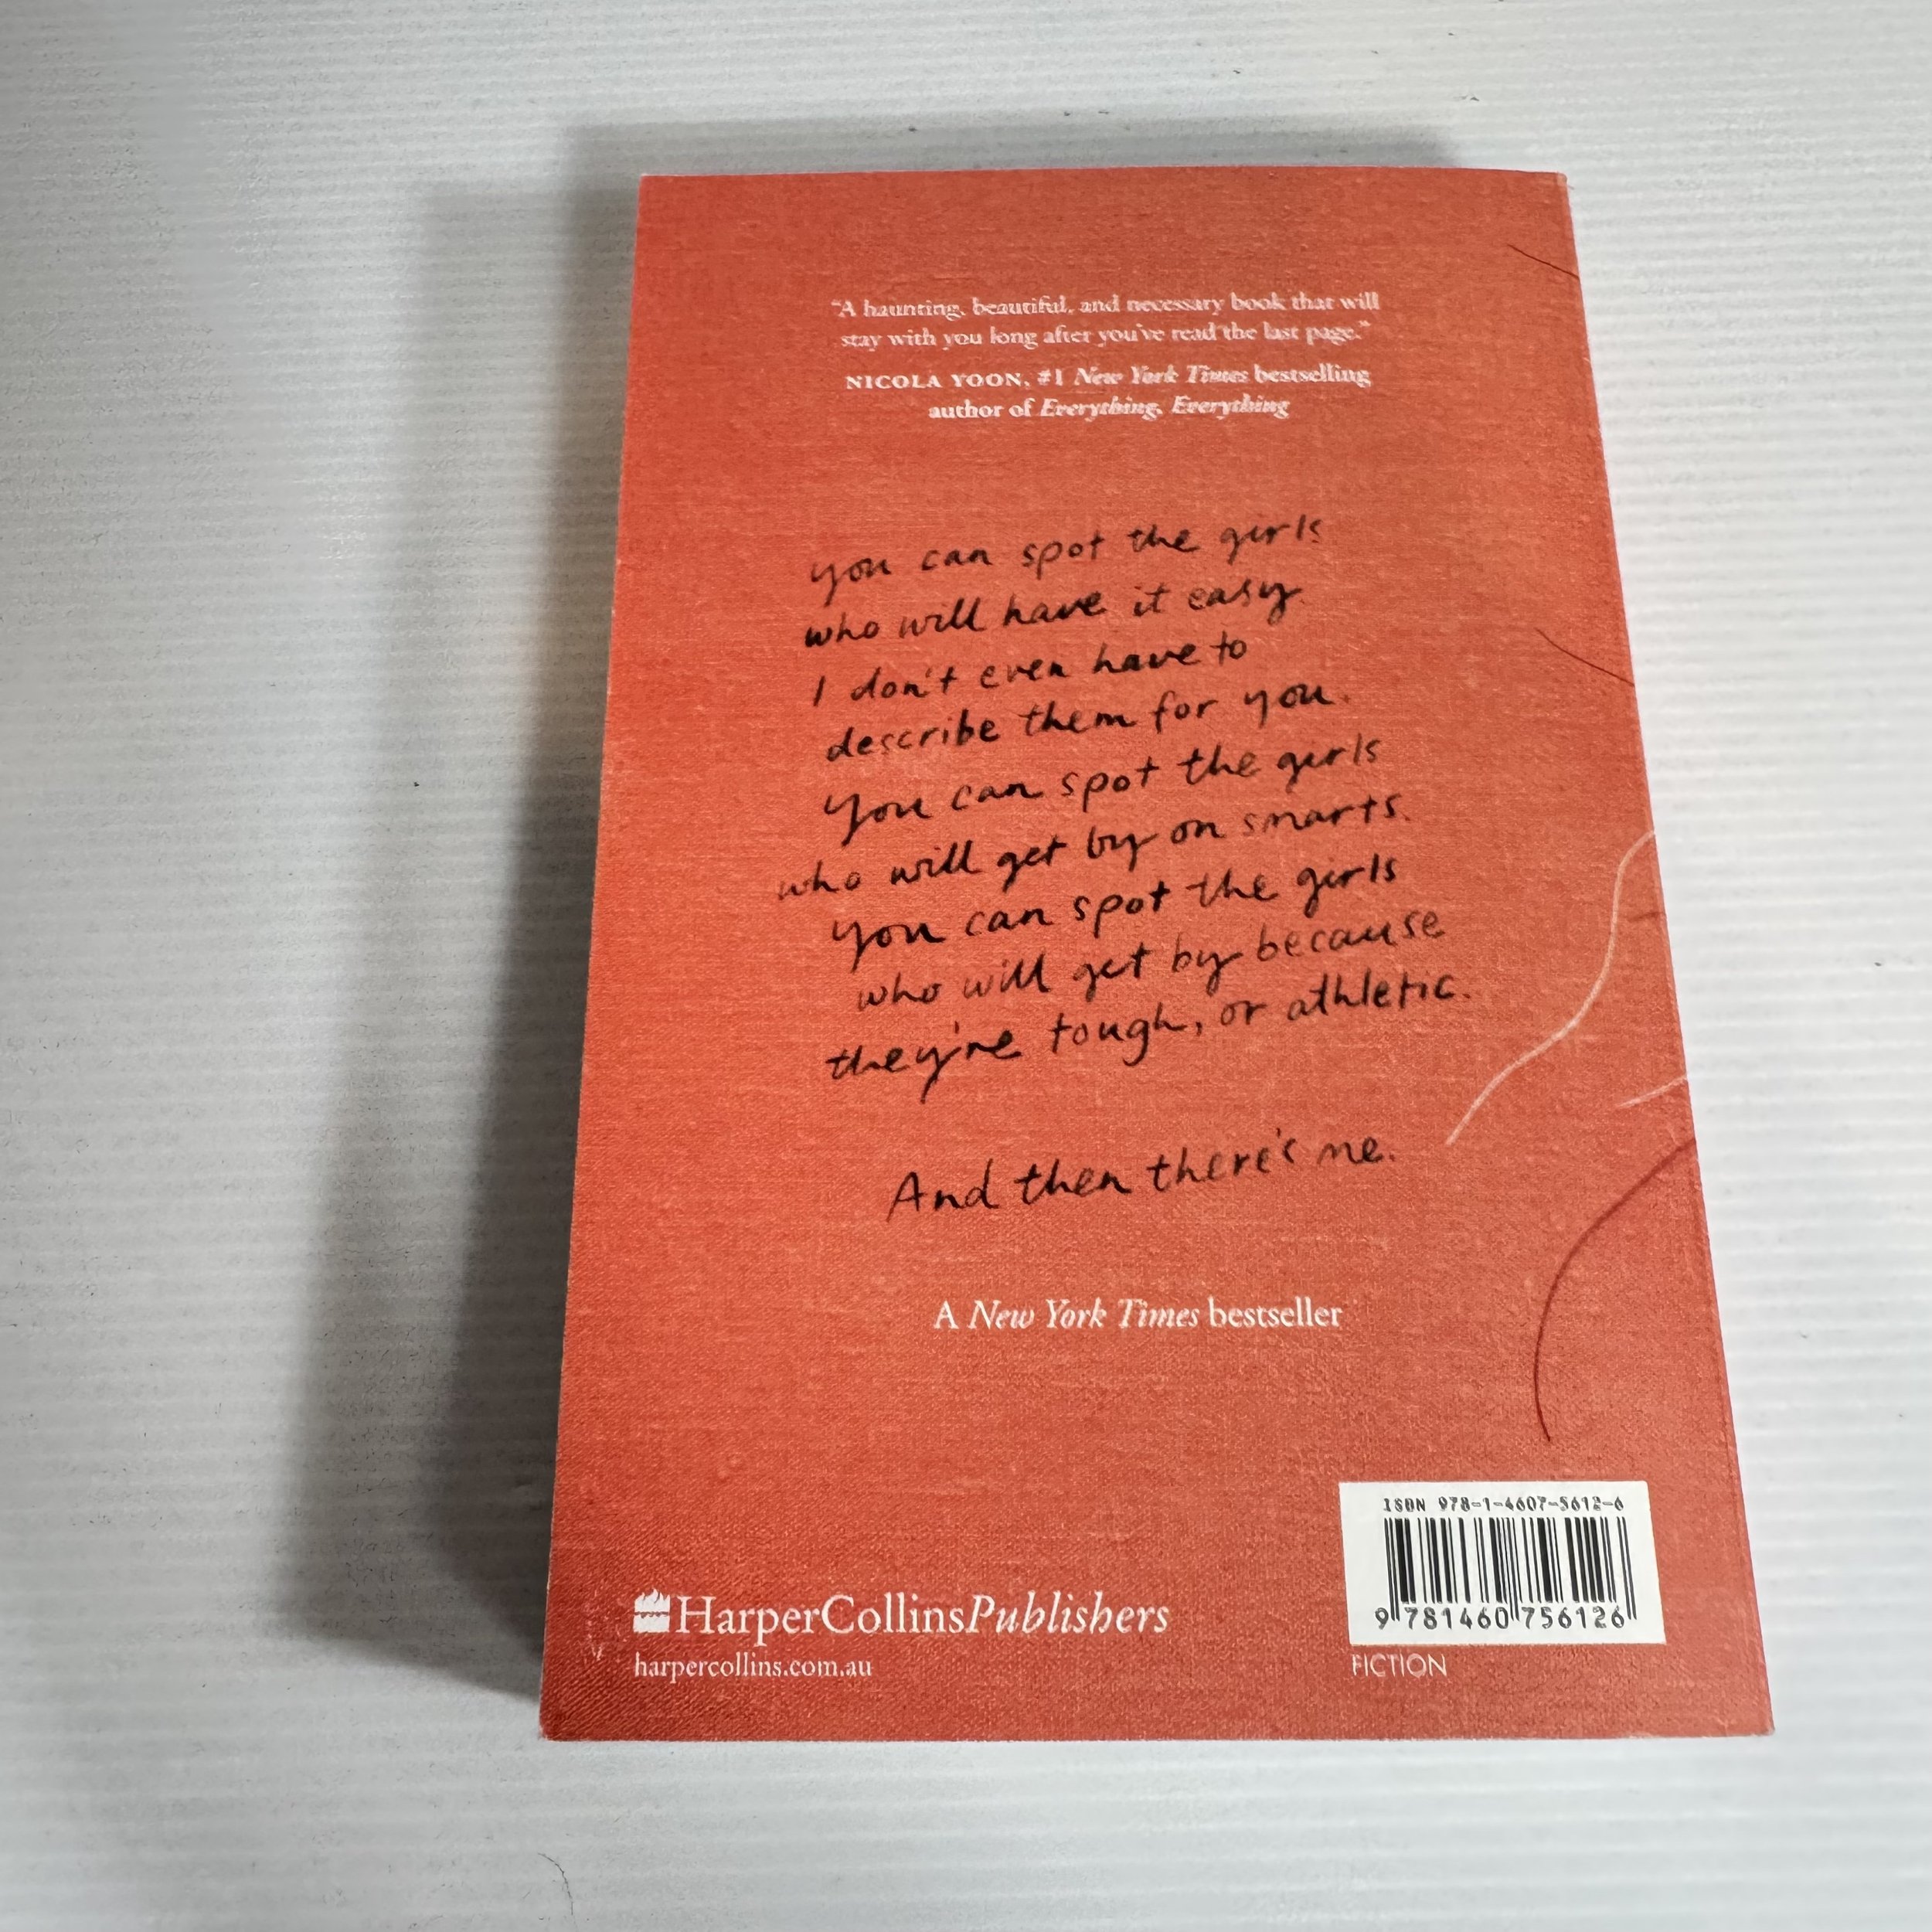 "A haunting, beautiful, and necessary book that will
stay with you long after you've read the last page."
NICOLA YOON, #1 New York Times bestselling
author of Everything, Everything
you can spot the girls
who will have it easy.
I don't even have to
describe them for you.
You can spot the girls
who will get by on smarts.
You can spot the girls
who will get by because
they're tough, or athletic.
And then there's me.
A New York Times bestseller
ISBN 978-1-4607-5612-6
9 781460 756126
HarperCollinsPublishers
harpercollins.com.au
FICTION